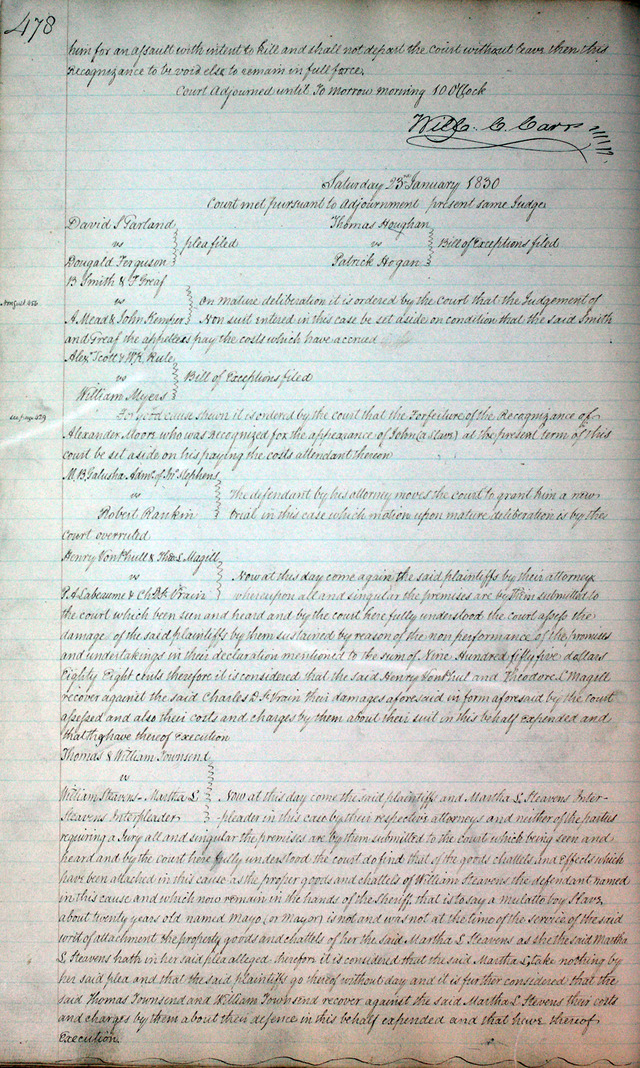 478
him for an assault with intent to kill and shall not depart the court without leave then this
Recognizance to be void else to remain in full force.
Court Adjourned until To morrow morning 10 OClock
Will. C. Carr
Saturday 23rd January 1830
Court met pursuant to Adjournment present same Judge
David S Garland
vs
plea filed
Dougald Ferguson
Thomas Houghan
vs
Bill of Exceptions filed
Patrick Hogan
B Smith & T Greaf
vs
A. Mead & John Kemper
On mature deliberation it is ordered by the Court that the Judgement of
Non suit entered in this case be set aside on condition that the said Smith
and Greaf the appellees pay the costs which have accrued
Alex. Scott & W.K. Rule
vs
Bill of Exceptions filed
William Myers
see page 429
For good cause shewn it is ordered by the court that the Forfeiture of the Recognizance of
Alexander Moor who was Recognized for the appearance of John (a Slave) at the present term of this
court be set aside on his paying the costs attendant thereon
M, B Galusha Admr. of Jno Stephens
vs
Robert Rankin
The defendant by his attorney moves the court to grant him a new
trial in this case which motion upon mature deliberation is by the
court overruled
Henry Von Phull & Theo. L Magill
vs
P. A Labeaume & Ch. D St Vrain
Now at this day come again the said plaintiffs by their attorney
whereupon all and singular the premises are by them submitted to
the court which been seen and heard and by the court here fully understood the court assess the
damage of the said plaintiffs by them sustained by reason of the non performance of the promises
and undertakings in their declaration mentioned to the sum of Nine Hundred fifty five dollars
Eighty Eight cents therefore it is considered that the said Henry Von Phul and Theodore L Magill
recover against the said Charles D St Vrain their damages aforesaid in form aforesaid by the court
assessed and also their costs and charges by them about their suit in this behalf Expended and
that they have thereof Execution
Thomas & William Townsend
vs
William Steavens - Martha L
Steavens Interpleader
Now at this day come the said plaintiffs and Martha L Steavens Inter-
pleader in this case by their respective attorneys and neither of the parties
requiring a Jury all and singular the premises are by them submitted to the court which being seen and
heard and by the court here fully understood the court do find that of the goods chattels and effects which
have been attached in this cause as the proper goods and chattels of William Steavens the defendant named
in this cause and which now remain in the hands of the Sheriff, that is to say a mulatto boy Slave,
about twenty years old named Mayo (or Mayor) is not and was not at the time of the service of the said
writ of attachment the property goods and chattels of her the said Martha L Steavens as she the said Martha
L Steavens hath in her said plea alledged therefore it is considered that the said Martha L take nothing by
her said plea and that the said plaintiffs go thereof without day and it is further considered that the
said Thomas Townsend and William Townsend recover against the said Martha L Stevens their costs
and charges by them about their defence in this behalf expended and that have thereof
Execution.